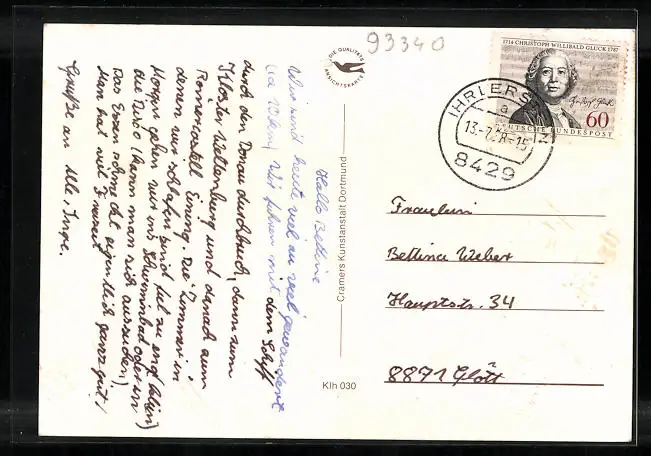 Hallo Bettine
Wir sind heute viel zu viel gewandert
(ca 10 km). Wir fuhren mit dem Schiff
durch den Donaudurchbruch, dann zum
Kloster Weltenburg und danach zum
Römerkastell Eining. Die Zimmer in
denen wir schlafen sind viel zu eng (klein)
Morgen gehen wir ins Schwimmbad oder in
die Disco (kann man sich aussuchen)
Das Essen schmeckt eigentlich ganz gut!
Man hat viel Freizeit
Grüße an Alle, Inge.
DIE QUALITÄTS
ANSICHTSKARTE
Cramers Kunstanstalt Dortmund
Klh 030
93340
1714 CHRISTOPH WILLIBALD GLUCK 1787
60
DEUTSCHE BUNDESPOST
IHRLERSTEIN
a
13.-7.8-15
8429
Fräulein
Bettina Weber
Hauptstr. 34
8871 Glött